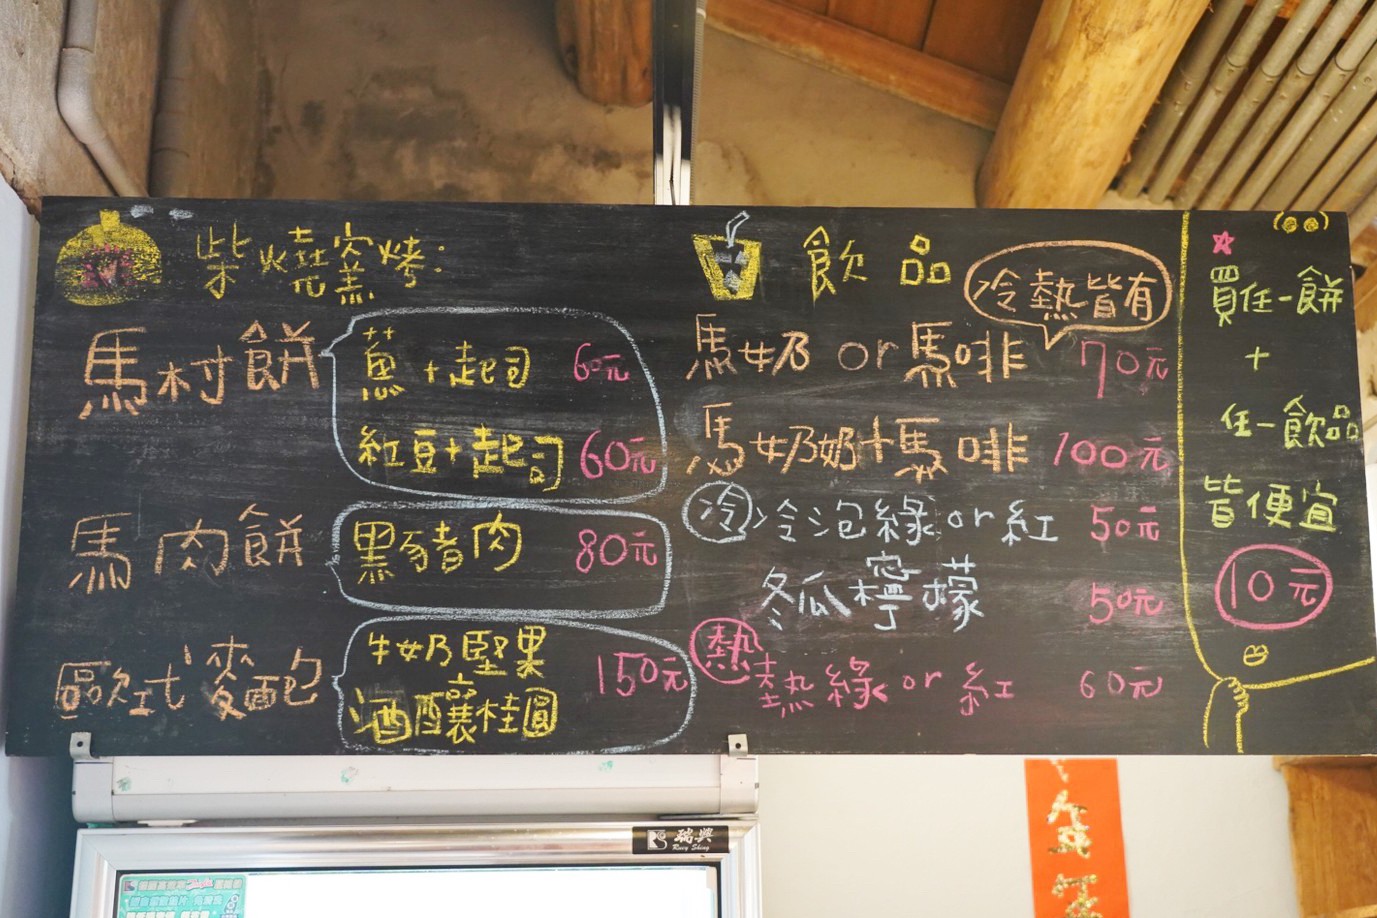 柴燒窯烤:
馬村餅
蔥+起司 60元
紅豆+起司 60元
馬肉餅
黑豬肉 80元
歐式麥麵包
牛奶堅果
酒釀桂圓
150元
飲品
冷熱皆有
馬奶 or 馬啡 70元
馬奶奶+馬啡 100元
冷 冷泡綠 or 紅 50元
冬瓜檸檬 50元
熱 熱綠 or 紅 60元
買任一餅
+
任一飲品
皆便宜
10元
瑞興
Ruey Shing